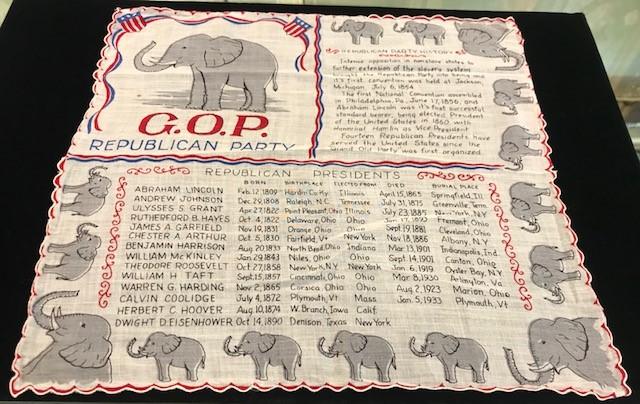 G.O.P.
REPUBLICAN PARTY
REPUBLICAN PARTY HISTORY
Intense opposition in nonslave states to
further extension of the slavery system
brought the Republican Party into being and
it's first convention was held at Jackson,
Michigan July 6, 1854.
The first National Convention assembled
in Philadelphia, Pa., June 17, 1856, and
Abraham Lincoln was it's first successful
standard bearer, being elected President
of the United States in 1860, with
Hannibal Hamlin as Vice President
Fourteen Republican Presidents have
served the United States since the
Grand Old Party was first organized.
REPUBLICAN PRESIDENTS
BORN BIRTHPLACE ELECTED FROM DIED BURIAL PLACE
ABRAHAM LINCOLN Feb. 12, 1809 Hardin Co. Ky Illinois April 15, 1865 Springfield, Ill.
ANDREW JOHNSON Dec. 29, 1808 Raleigh, N.C. Tennessee July 31, 1875 Greenville, Tenn.
ULYSSES S. GRANT Apr. 27, 1822 Point Pleasant, Ohio Illinois July 23, 1885 New York, N.Y.
RUTHERFORD B. HAYES Oct. 4, 1822 Delaware, Ohio Ohio Jan. 17, 1893 Fremont, Ohio
JAMES A. GARFIELD Nov. 19, 1831 Orange, Ohio Ohio Sept. 19, 1881 Cleveland, Ohio
CHESTER A. ARTHUR Oct. 5, 1830 Fairfield, Vt New York Nov. 18, 1886 Albany, N.Y
BENJAMIN HARRISON Aug. 20, 1833 North Bend, Ohio Indiana Mar. 13, 1901 Indianapolis, Ind.
WILLIAM McKINLEY Jan. 29, 1843 Niles, Ohio Ohio Sept. 14, 1901 Canton, Ohio
THEODORE ROOSEVELT Oct. 27, 1858 New York, N.Y. New York Jan. 6, 1919 Oyster Bay, N.Y
WILLIAM H TAFT Sept. 15, 1857 Cincinnati, Ohio Ohio Mar. 8, 1930 Arlington, Va
WARREN G. HARDING Nov. 2, 1865 Corsica, Ohio Ohio Aug. 2, 1923 Marion, Ohio
CALVIN COOLIDGE July 4, 1872 Plymouth, Vt Mass Jan. 5, 1933 Plymouth, Vt
HERBERT C. HOOVER Aug. 10, 1874 W. Branch, Iowa Calif.
DWIGHT D. EISENHOWER Oct 14, 1890 Denison, Texas New York